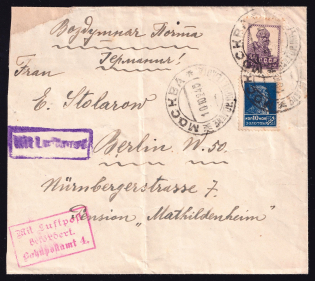 Воздушная Почта
Германия!
Frau
E. Stolarow
Berlin W. 50.
Nürnbergerstrasse 7
Pension „Mathildenheim"
Mit Luftpost
Mit Luftpost
befördert.
Bahnpostamt 4.
МОСКВА
МОСКВА